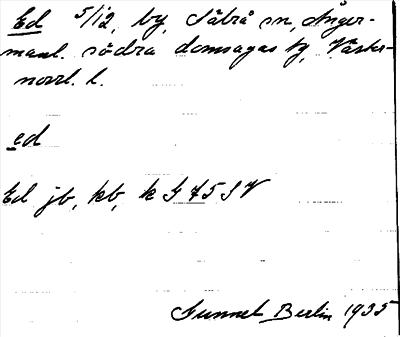 Ed 5/12, by, Säbrå sn, Ånger-
manl. södra domsagas tg, Väster-
norrl. l.
ed
Ed jb, kb, k G 75 SV
Gunnel Berlin 1935